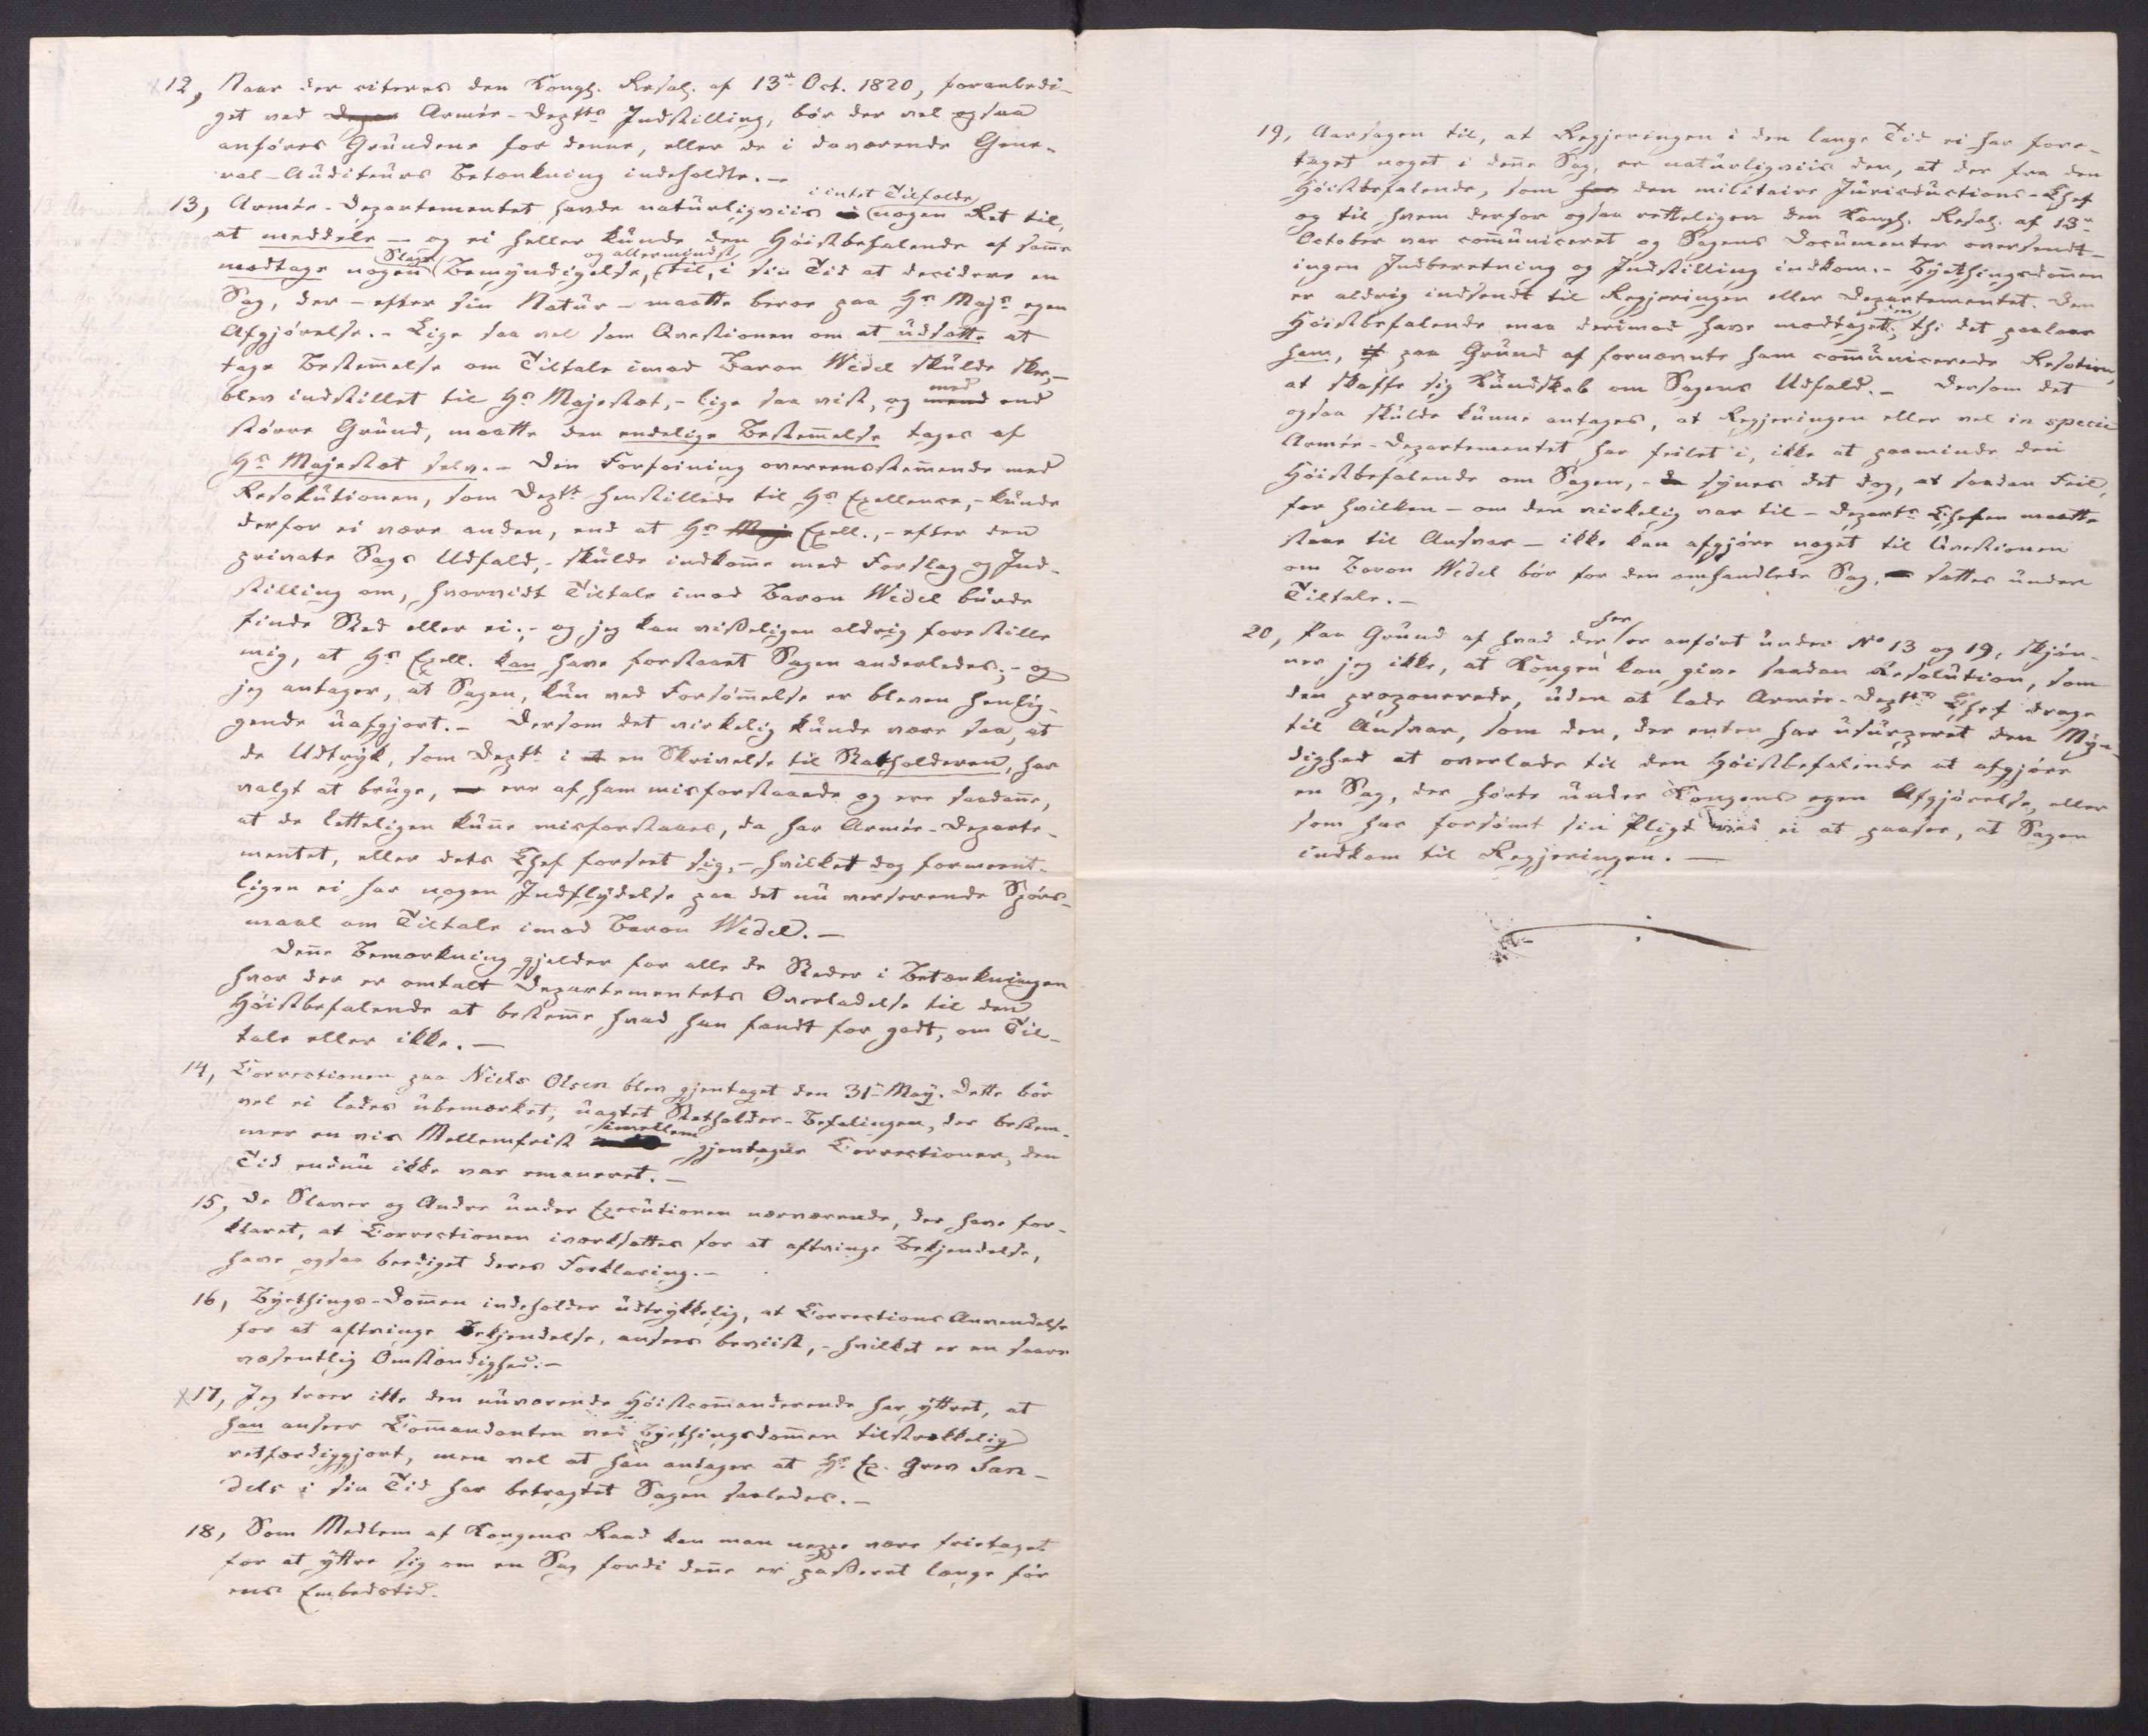 12, Naar der citeres den Kongl. Resol. af 13de Oct. 1820, foranledi-
get ved Armée-Deptts Indstilling, bör der vel ogsaa
anföres Grundene for denne, eller de i daværende Gene-
ral-Auditeurs Betænkning indeholdte.-
13, Armée-Departementet havde naturligviis i intet Tilfælde nogen Ret til,
at meddele - og ei heller kunde den Höistbefalende af samme
modtage nogen Slags Bemyndigelse, og allermindst til, i sin Tid at decidere en
Sag, der - efter sin Natur - maatte beroe paa Hs Majs egen
Afgjörelse.- Lige saa vel som Qvestionen om at udsætte at
tage Bestemmelse om Tiltale imod Baron Wedel skulde skee,-
blev indstillet til Hs Majestæt,- lige saa vist, og med end
större Grund, maatte den endelige Bestemmelse tages af
Hs Majestæt selv.- Den Forföining overeensstemmende med
Resolutionen, som Deptt henstillede til Hs Excellence,- kunde
derfor ei være anden, end at Hs Maj Excell.,- efter den
private Sags Udfald,- skulde indkomme med Forslag og Ind-
stilling om, hvorvidt Tiltale imod Baron Wedel burde
finde Sted eller ei.;- og jeg kan visseligen aldrig forestille
mig, at Hs Excell. kan have forstaaet Sagen anderledes;- og
jeg antager, at Sagen, kun ved Forsömmelse er bleven henlig-
gende uafgjort.- Dersom det virkelig kunde være saa, at
de Udtryk, som Deptt i en Skrivelse til Statholderen, har
valgt at bruge, ere af ham misforstaaede og ere saadanne,
at de letteligen kunne misforstaaes, da har Armée-Departe-
mentet, eller dets Chef forseet sig,- hvilket dog formeent-
ligen ei har nogen Indflydelse paa det nu verserende Spörs-
maal om Tiltale imod Baron Wedel.-
Denne Bemærkning gjelder for alle de Steder i Betænkningen
hvor der er omtalt Departementets Overladelse til den
Höistbefalende at bestemme hvad han fandt for godt, om Til-
tale eller ikke.-
14, Correctionen paa Niels Olsen blev gjentaget den 31te May. Dette bör
vel ei lades ubemærket, uagtet Statholder-Befalingen, der bestem-
mer en vis Mellemfrist imellem gjentagne Correctioner, den
Tid endnu ikke var emaneret.-
15, De Slaver og Andre under Executionen nærværende, der have for-
klaret, at Correctionen iværksattes for at aftvinge Bekjendelse,
have ogsaa beediget deres Forklaring.-
16, Byethings-Dommen indeholder udtrykkelig, at Corrections Anvendelse
for at aftvinge Bekjendelse, ansees beviist,- hvilket er en saare
væsentlig Omstændighed.-
17, Jeg troer ikke den nuværende Höistcommanderende har yttret, at
han anseer Commandanten ved Byethingsdommen tilstrækkelig
retfærdiggjort, men vel at han antager at Hs Ex. Grev San-
dels i sin Tid har betragtet Sagen saaledes.-
18, Som Medlem af Kongens Raad kan man neppe være fritaget
for at yttre sig om en Sag fordi denne er passeret længe för
ens Embedstid.
19, Aarsagen til, at Regjeringen i den lange Tid ei har fore-
taget noget i denne Sag, er naturligviis den, at der fra den
Höistbefalende, som har den militaire Jurisdictions-Chef
og til hvem derfor ogsaa retteligen den Kongl. Resol. af 13de
October var communiceret og Sagens Documenter oversendt-
ingen Indberetning og Indstilling indkom.- Byethingsdommen
er aldrig indsendt til Regjeringen eller Departementet. Den
Höistbefalende maa derimod have modtaget den; thi det paalaae
ham, paa Grund af fornævnte ham communicerede Resolution,
at skaffe sig Kundskab om Sagens Udfald.- Dersom det
ogsaa skulde kunne antages, at Regjeringen eller vel in specie
Armée-Departementet har feilet i, ikke at paaminde den
Höistbefalende om Sagen,- synes det dog, at saadan Feil,
for hvilken - om den virkelig var til - Departs Chefen maatte
staae til Ansvar - ikke kan afgjöre noget til Qvestionen
om Baron Wedel bör for den omhandlede Sag, sættes under
Tiltale.-
20, Paa Grund af hvad der her er anfört under No 13 og 19, skjön-
ner jeg ikke, at Kongen kan give saadan Resolution, som
den proponerede, uden at lade Armée-Deptts Chef drage
til Ansvar, som den, der enten har usurperet den Myn-
dighed at overlade til den Höistbefalende at afgjöre
en Sag, der hörte under Kongens egen Afgjörelse, eller
som har forsömt sin Pligt ved ei at paasee, at Sagen
indkom til Regjeringen.-